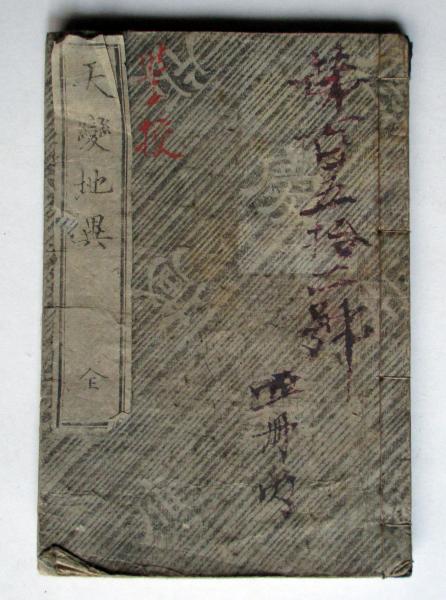 第百五拾二號
四冊内
學校
天變地異
全